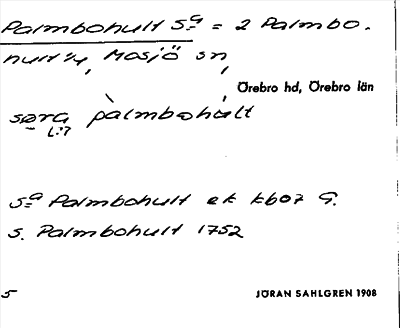 Palmbohult Sᵃ = 2 Palmbo-
hult ¼, Mosjö sn,
Örebro hd, Örebro län
søra pàlmbohúlt
Sᵃ Palmbohult ek kb07 G.
S. Palmbohult 1752
5 JÖRAN SAHLGREN 1908